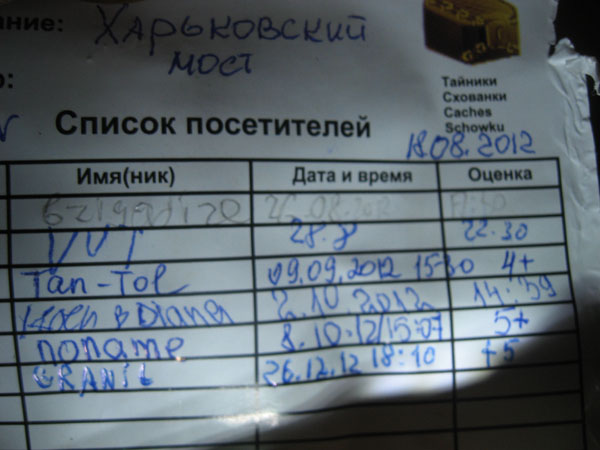 ание: Харьковский
мост
Тайники
Схованки
Caches
Schowku
Список посетителей
18.08.2012
Имя(ник) Дата и время Оценка
26.08.2012
VVT 28.8 22.30
Tan-Tol 09.09.2012 15-30 4+
Diana 2.10.2012 14:59
noname 8.10.12/15:07 5+
GRANIL 26.12.12 18:10 +5